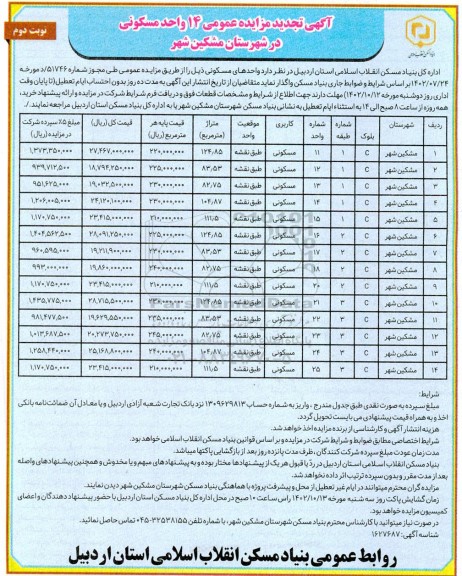 نوبت دوم
آگهی تجدید مزایده عمومی ۱۴ واحد مسکونی
در شهرستان مشکین شهر
اداره کل بنیاد مسکن انقلاب اسلامی استان اردبیل در نظر دارد واحدهای مسکونی ذیل را از طریق مزایده عمومی طی مجوز شماره ۵۱۷۴۶/د مورخه
۱۴۰۲/۰۷/۲۴ بر اساس شرایط و ضوابط جاری بنیاد مسکن واگذار نماید متقاضیان از تاریخ انتشار این آگهی به مدت ده روز بدون احتساب ایام تعطیل (تا پایان وقت
اداری روز دوشنبه مورخه ۱۴۰۲/۱۰/۱۲) مهلت دارند جهت اطلاع از شرایط و مشخصات قطعات فوق و دریافت فرم شرایط شرکت در مزایده و ارائه پیشنهاد خرید،
همه روزه از ساعت ۸ صبح الی ۱۴ به استثناء ایام تعطیل به نشانی بنیاد مسکن شهرستان مشکین شهر یا به اداره کل بنیاد مسکن استان اردبیل مراجعه نمایند./
ردیف شهرستان بلوک شماره طبقه شماره واحد کاربری متراژ (مترمربع) موقعیت واحد قیمت پایه هر مترمربع (ریال) قیمت کل (ریال) مبلغ ۵٪ سپرده شرکت در مزایده (ریال)
۱ مشکین شهر C ۱ ۱۱ مسکونی ۱۲۴,۸۵ طبق نقشه ۲۲۰,۰۰۰,۰۰۰ ۲۷,۴۶۷,۰۰۰,۰۰۰ ۱,۳۷۳,۳۵۰,۰۰۰
۲ مشکین شهر C ۱ ۱۲ مسکونی ۸۳,۵۳ طبق نقشه ۲۲۵,۰۰۰,۰۰۰ ۱۸,۷۹۴,۲۵۰,۰۰۰ ۹۳۹,۷۱۲,۵۰۰
۳ مشکین شهر C ۱ ۱۳ مسکونی ۸۲,۷۵ طبق نقشه ۲۳۰,۰۰۰,۰۰۰ ۱۹,۰۳۲,۵۰۰,۰۰۰ ۹۵۱,۶۲۵,۰۰۰
۴ مشکین شهر C ۱ ۱۴ مسکونی ۱۰۴,۸۷ طبق نقشه ۲۳۰,۰۰۰,۰۰۰ ۲۴,۱۲۰,۱۰۰,۰۰۰ ۱,۲۰۶,۰۰۵,۰۰۰
۵ مشکین شهر C ۱ ۱۵ مسکونی ۱۱۱,۵ طبق نقشه ۲۱۰,۰۰۰,۰۰۰ ۲۳,۴۱۵,۰۰۰,۰۰۰ ۱,۱۷۰,۷۵۰,۰۰۰
۶ مشکین شهر C ۲ ۱۶ مسکونی ۱۲۴,۸۵ طبق نقشه ۲۲۵,۰۰۰,۰۰۰ ۲۸,۰۹۱,۲۵۰,۰۰۰ ۱,۴۰۴,۵۶۲,۵۰۰
۷ مشکین شهر C ۲ ۱۷ مسکونی ۸۳,۵۳ طبق نقشه ۲۳۰,۰۰۰,۰۰۰ ۱۹,۲۱۱,۹۰۰,۰۰۰ ۹۶۰,۵۹۵,۰۰۰
۸ مشکین شهر C ۲ ۱۸ مسکونی ۸۲,۷۵ طبق نقشه ۲۴۰,۰۰۰,۰۰۰ ۱۹,۸۶۰,۰۰۰,۰۰۰ ۹۹۳,۰۰۰,۰۰۰
۹ مشکین شهر C ۲ ۲۰ مسکونی ۱۱۱,۵ طبق نقشه ۲۱۰,۰۰۰,۰۰۰ ۲۳,۴۱۵,۰۰۰,۰۰۰ ۱,۱۷۰,۷۵۰,۰۰۰
۱۰ مشکین شهر C ۳ ۲۱ مسکونی ۱۲۴,۸۵ طبق نقشه ۲۳۰,۰۰۰,۰۰۰ ۲۸,۷۱۵,۵۰۰,۰۰۰ ۱,۴۳۵,۷۷۵,۰۰۰
۱۱ مشکین شهر C ۳ ۲۲ مسکونی ۸۳,۵۳ طبق نقشه ۲۳۵,۰۰۰,۰۰۰ ۱۹,۶۲۹,۵۵۰,۰۰۰ ۹۸۱,۴۷۷,۵۰۰
۱۲ مشکین شهر C ۳ ۲۳ مسکونی ۸۲,۷۵ طبق نقشه ۲۴۵,۰۰۰,۰۰۰ ۲۰,۲۷۳,۷۵۰,۰۰۰ ۱,۰۱۳,۶۸۷,۵۰۰
۱۳ مشکین شهر C ۳ ۲۴ مسکونی ۱۰۴,۸۷ طبق نقشه ۲۴۰,۰۰۰,۰۰۰ ۲۵,۱۶۸,۸۰۰,۰۰۰ ۱,۲۵۸,۴۴۰,۰۰۰
۱۴ مشکین شهر C ۳ ۲۵ مسکونی ۱۱۱,۵ طبق نقشه ۲۱۰,۰۰۰,۰۰۰ ۲۳,۴۱۵,۰۰۰,۰۰۰ ۱,۱۷۰,۷۵۰,۰۰۰
شرایط:
مبلغ سپرده به صورت نقدی طبق جدول مندرج ، واریز به شماره حساب ۱۳۰۹۶۲۹۸۱۳ نزد بانک تجارت شعبه آزادی اردبیل و یا معادل آن ضمانت‌نامه بانکی
اخذ و به همراه قیمت پیشنهادی می بایست تحویل گردد.
هزینه انتشار آگهی و کارشناسی از برنده مزایده اخذ خواهد شد.
شرایط اختصاصی مطابق ضوابط و شرایط شرکت در مزایده و بر اساس قوانین بنیاد مسکن انقلاب اسلامی خواهد بود.
مدت زمان عودت مبلغ سپرده شرکت کنندگان ، ظرف مدت پانزده روز بعد از بازگشایی پاکتها میباشد.
بنیاد مسکن انقلاب اسلامی استان اردبیل در رد یا قبول هر یک از پیشنهادها مختار بوده و به پیشنهادهای مبهم و یا مخدوش و همچنین پیشنهادهای واصله
بعد از مدت مقرر و بدون سپرده ترتیب اثر داده نخواهد شد.
مزایده گران محترم میتوانند در ایام غیر تعطیل از محل و پیشرفت پروژه با هماهنگی بنیاد مسکن شهرستان مشکین شهر دیدن نمایند.
زمان گشایش پاکت روز سه شنبه مورخه ۱۴۰۲/۱۰/۱۳ راس ساعت ۱۰ صبح در محل اداره کل بنیاد مسکن استان اردبیل با حضور پیشنهاد دهندگان و اعضای
کمیسیون مزایده خواهد بود.
در صورت نیاز میتوانید با کارشناس محترم بنیاد مسکن شهرستان مشکین شهر، با شماره تلفن ۳۲۵۳۸۱۵۵-۰۴۵ تماس حاصل نمائید.
شناسه آگهی: ۱۶۲۷۶۸۷
روابط عمومی بنیاد مسکن انقلاب اسلامی استان اردبیل